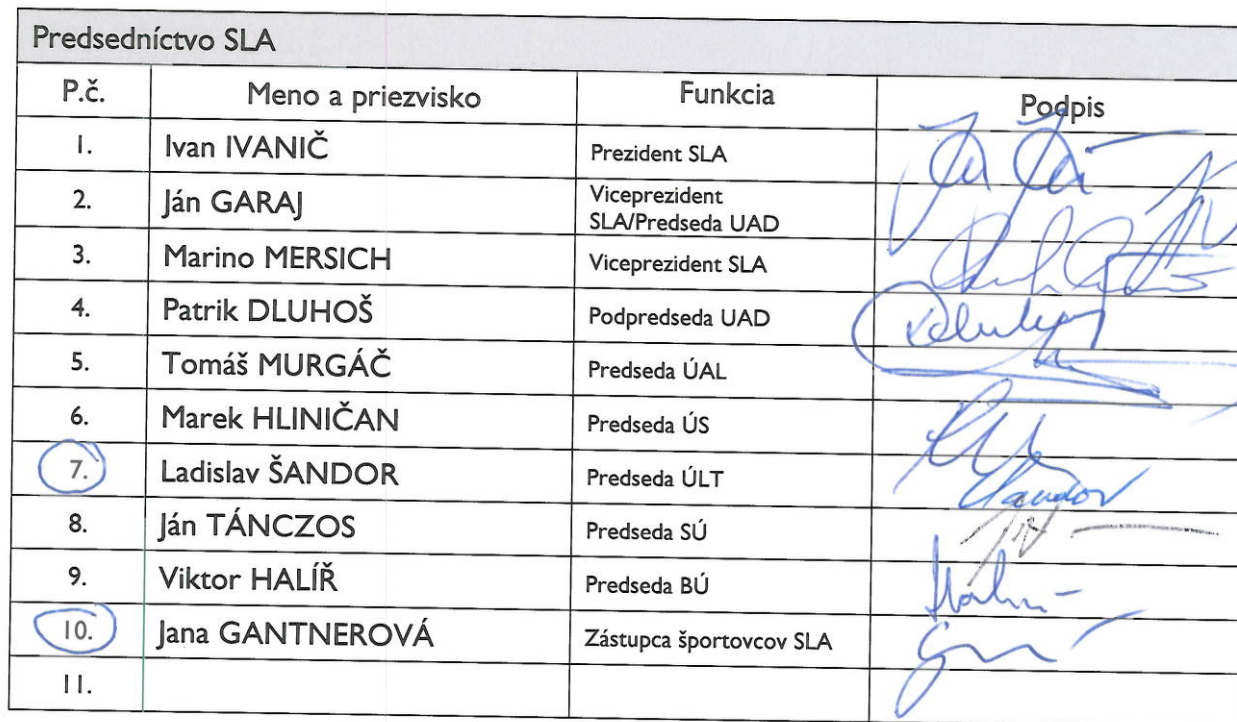 Predsedníctvo SLA
P.č. Meno a priezvisko Funkcia Podpis
1. Ivan IVANIČ Prezident SLA
2. Ján GARAJ Viceprezident
SLA/Predseda UAD
3. Marino MERSICH Viceprezident SLA
4. Patrik DLUHOŠ Podpredseda UAD
5. Tomáš MURGÁČ Predseda ÚAL
6. Marek HLINIČAN Predseda ÚS
7. Ladislav ŠANDOR Predseda ÚLT
8. Ján TÁNCZOS Predseda SÚ
9. Viktor HALÍŘ Predseda BÚ
10. Jana GANTNEROVÁ Zástupca športovcov SLA
11.